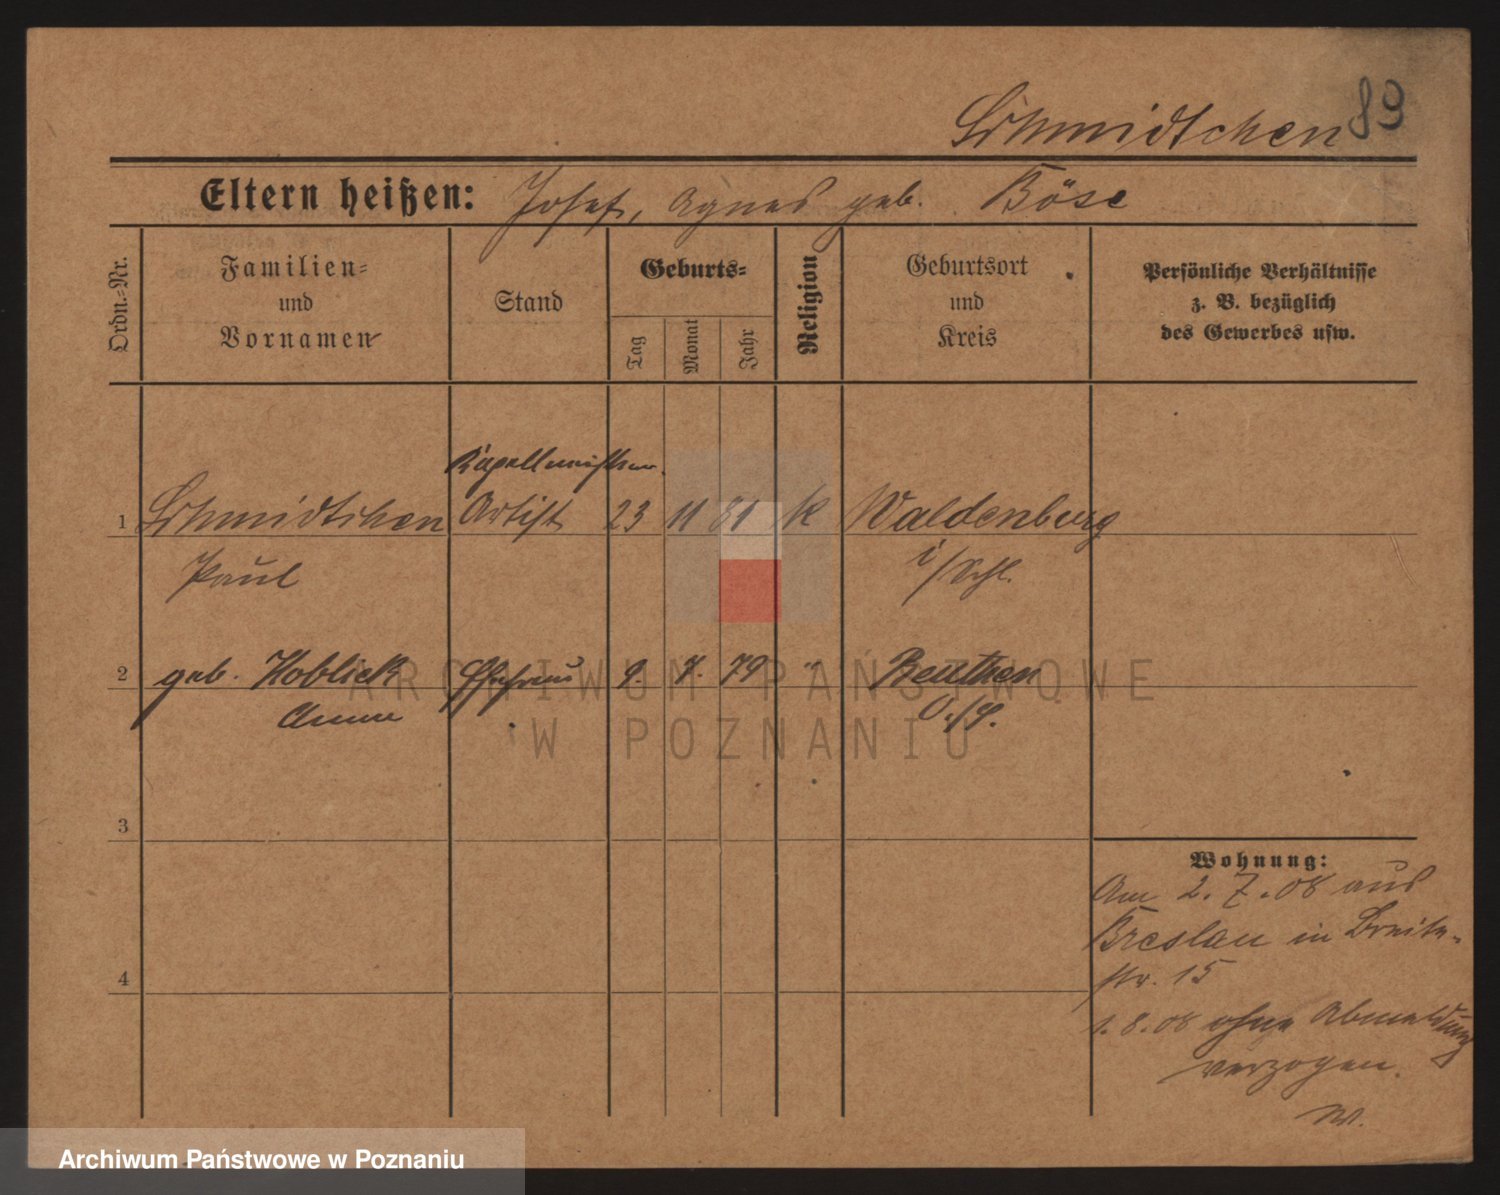 Schmidtchen 89
Eltern heißen: Josef, Agnes geb. Böse
Ordn.-Nr.
Familien-
und
Vornamen
Stand
Geburts-
Tag
Monat
Jahr
Religion
Geburtsort
und
Kreis
Persönliche Verhältnisse
z. B. bezüglich
des Gewerbes usw.
Kapellmeister
1 Schmidtchen Artist 23 11 81 k Waldenburg
Paul i/Schl.
2 geb. Hoblick Ehefrau 9. 7. 79 " Beuthen
Anna O./S.
3
Wohnung:
Am 2. 7. 08 aus
Breslau in Breite-
str. 15
4
1. 8. 08 ohne Abmeldung
verzogen.
W.
ARCHIWUM PAŃSTWOWE
W POZNANIU
Archiwum Państwowe w Poznaniu